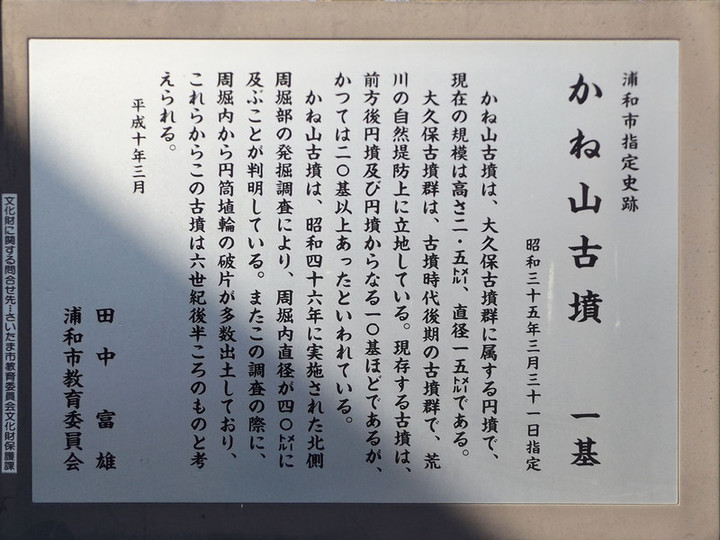 浦和市指定史跡
かね山古墳　一基
昭和三十五年三月三十一日指定
かね山古墳は、大久保古墳群に属する円墳で、
現在の規模は高さ二・五㍍、直径一五㍍である。
大久保古墳群は、古墳時代後期の古墳群で、荒
川の自然堤防上に立地している。現存する古墳は、
前方後円墳及び円墳からなる一〇基ほどであるが、
かつては二〇基以上あったといわれている。
かね山古墳は、昭和四十六年に実施された北側
周堀部の発掘調査により、周堀内直径が四〇㍍に
及ぶことが判明している。またこの調査の際に、
周堀内から円筒埴輪の破片が多数出土しており、
これらからこの古墳は六世紀後半ころのものと考
えられる。
平成十年三月
田中富雄
浦和市教育委員会
文化財に関する問合せ先…さいたま市教育委員会文化財保護課